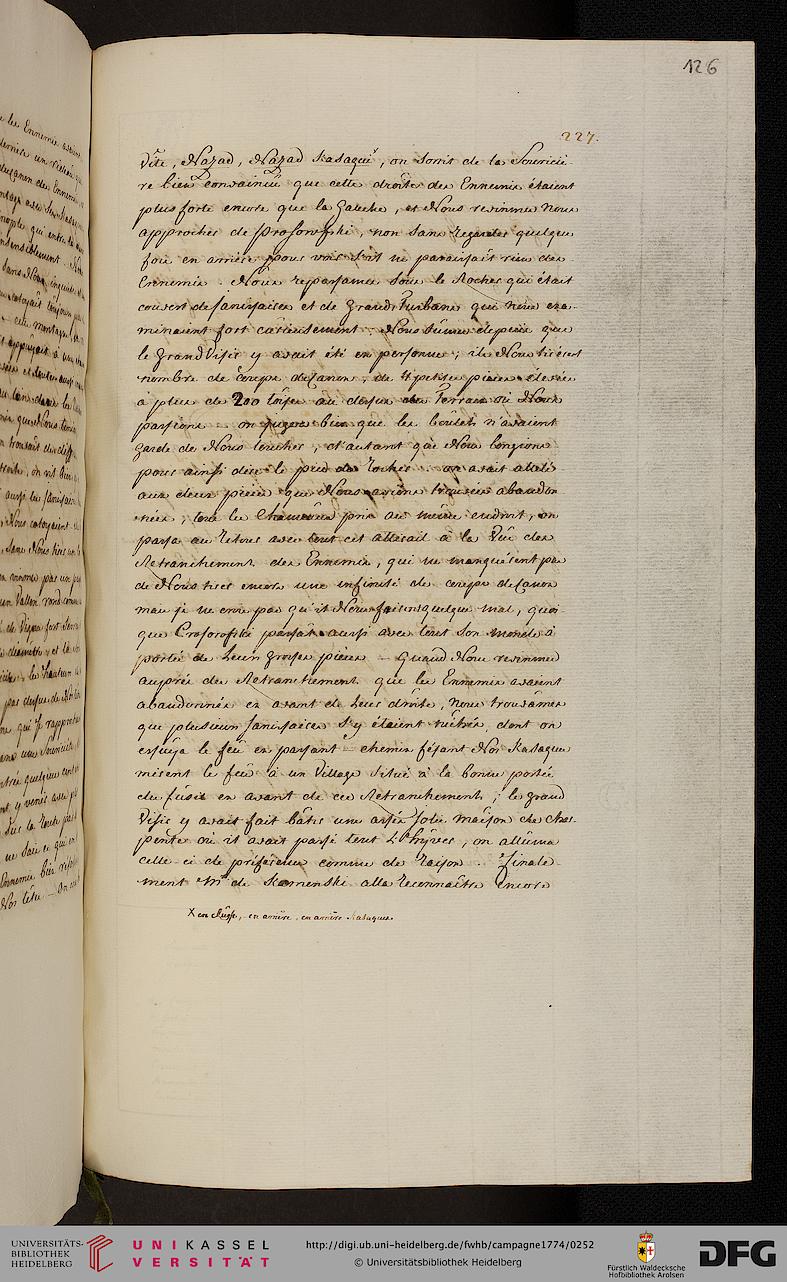 126
227.
Vîte, Nazad, Nazad Kasaqui x, on sortit de la Souricie
re bien convaincu que cette droite des Ennemis étaient
plus forte encore que la Gauche, et Nous revinmes Nous
approcher de Prosorofski, non sans regarder quelque
fois en arrière pour voir s'il ne paraissait rien des
Ennemis. Nous repassames sous le Rocher qui était
couvert de Janissaires et de grands Turbans qui nous exa-
minaient fort curieusement; Nous sûmes depuis que
le Grand Visir y avait été en personne; ils Nous tirèrent
nombre de coups de Canons, de 4 petites pièces élevées
à plus de 200 toises au dessus du Terrain où Nous
passions on jugera bien que les boulets n'avaient
garde de Nous toucher, d'autant que Nous longions
pour ainsi dire le pied du Rocher. on avait attelé
aux deux pièces que Nous avions trouvées abandon
nées, tous les Chameaux pris au même endroit, on
passa au retour avec tout cet attirail à la Vue des
Retranchements des Ennemis, qui ne manquèrent pas
de Nous tirer encore une infinité de coups de Canon
mais je ne crois pas qu'il Nous faisons quelque mal, quoi-
que Prosorofski passât aussi avec tout son monde à
portée de Leurs grosses pièces – Quand Nous revinmes
auprès des Retranchements que les Ennemis avaient
abandonnés en avant de Leur droite, Nous trouvâmes
que plusieurs Janissaires s'y étaient nichés, dont on
essuya le feu en passant – chemin fésant Nos Kasaques
mirent le feu à un Village situé à la bonne portée
du fusil en avant de ces Retranchements; le grand
Visir y avait fait bâtir une assez jolie Maison de char-
pente où il avait passé tout L'hyver, on alluma
celle-ci de préférence comme de Raison. Finale-
ment Mr. de Kamenski alla reconnaître Encore
x en Russe, en arrière, en arrière Kasaques
UNIVERSITÄTS-
BIBLIOTHEK
HEIDELBERG
UNIKASSEL
VERSITÄT
http://digi.ub.uni-heidelberg.de/fwhb/campagne1774/0252
© Universitätsbibliothek Heidelberg
Fürstlich Waldecksche
Hofbibliothek Arolsen
DFG